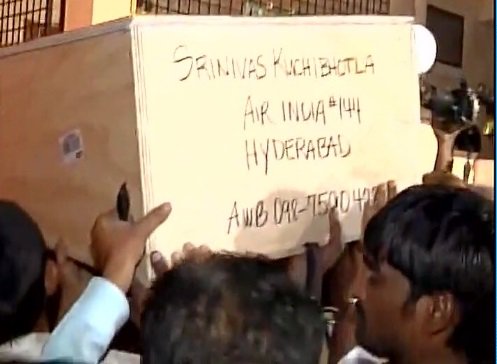 SRINIVAS KUCHIBHOTLA
AIR INDIA #144
HYDERABAD
AWB 098-7590